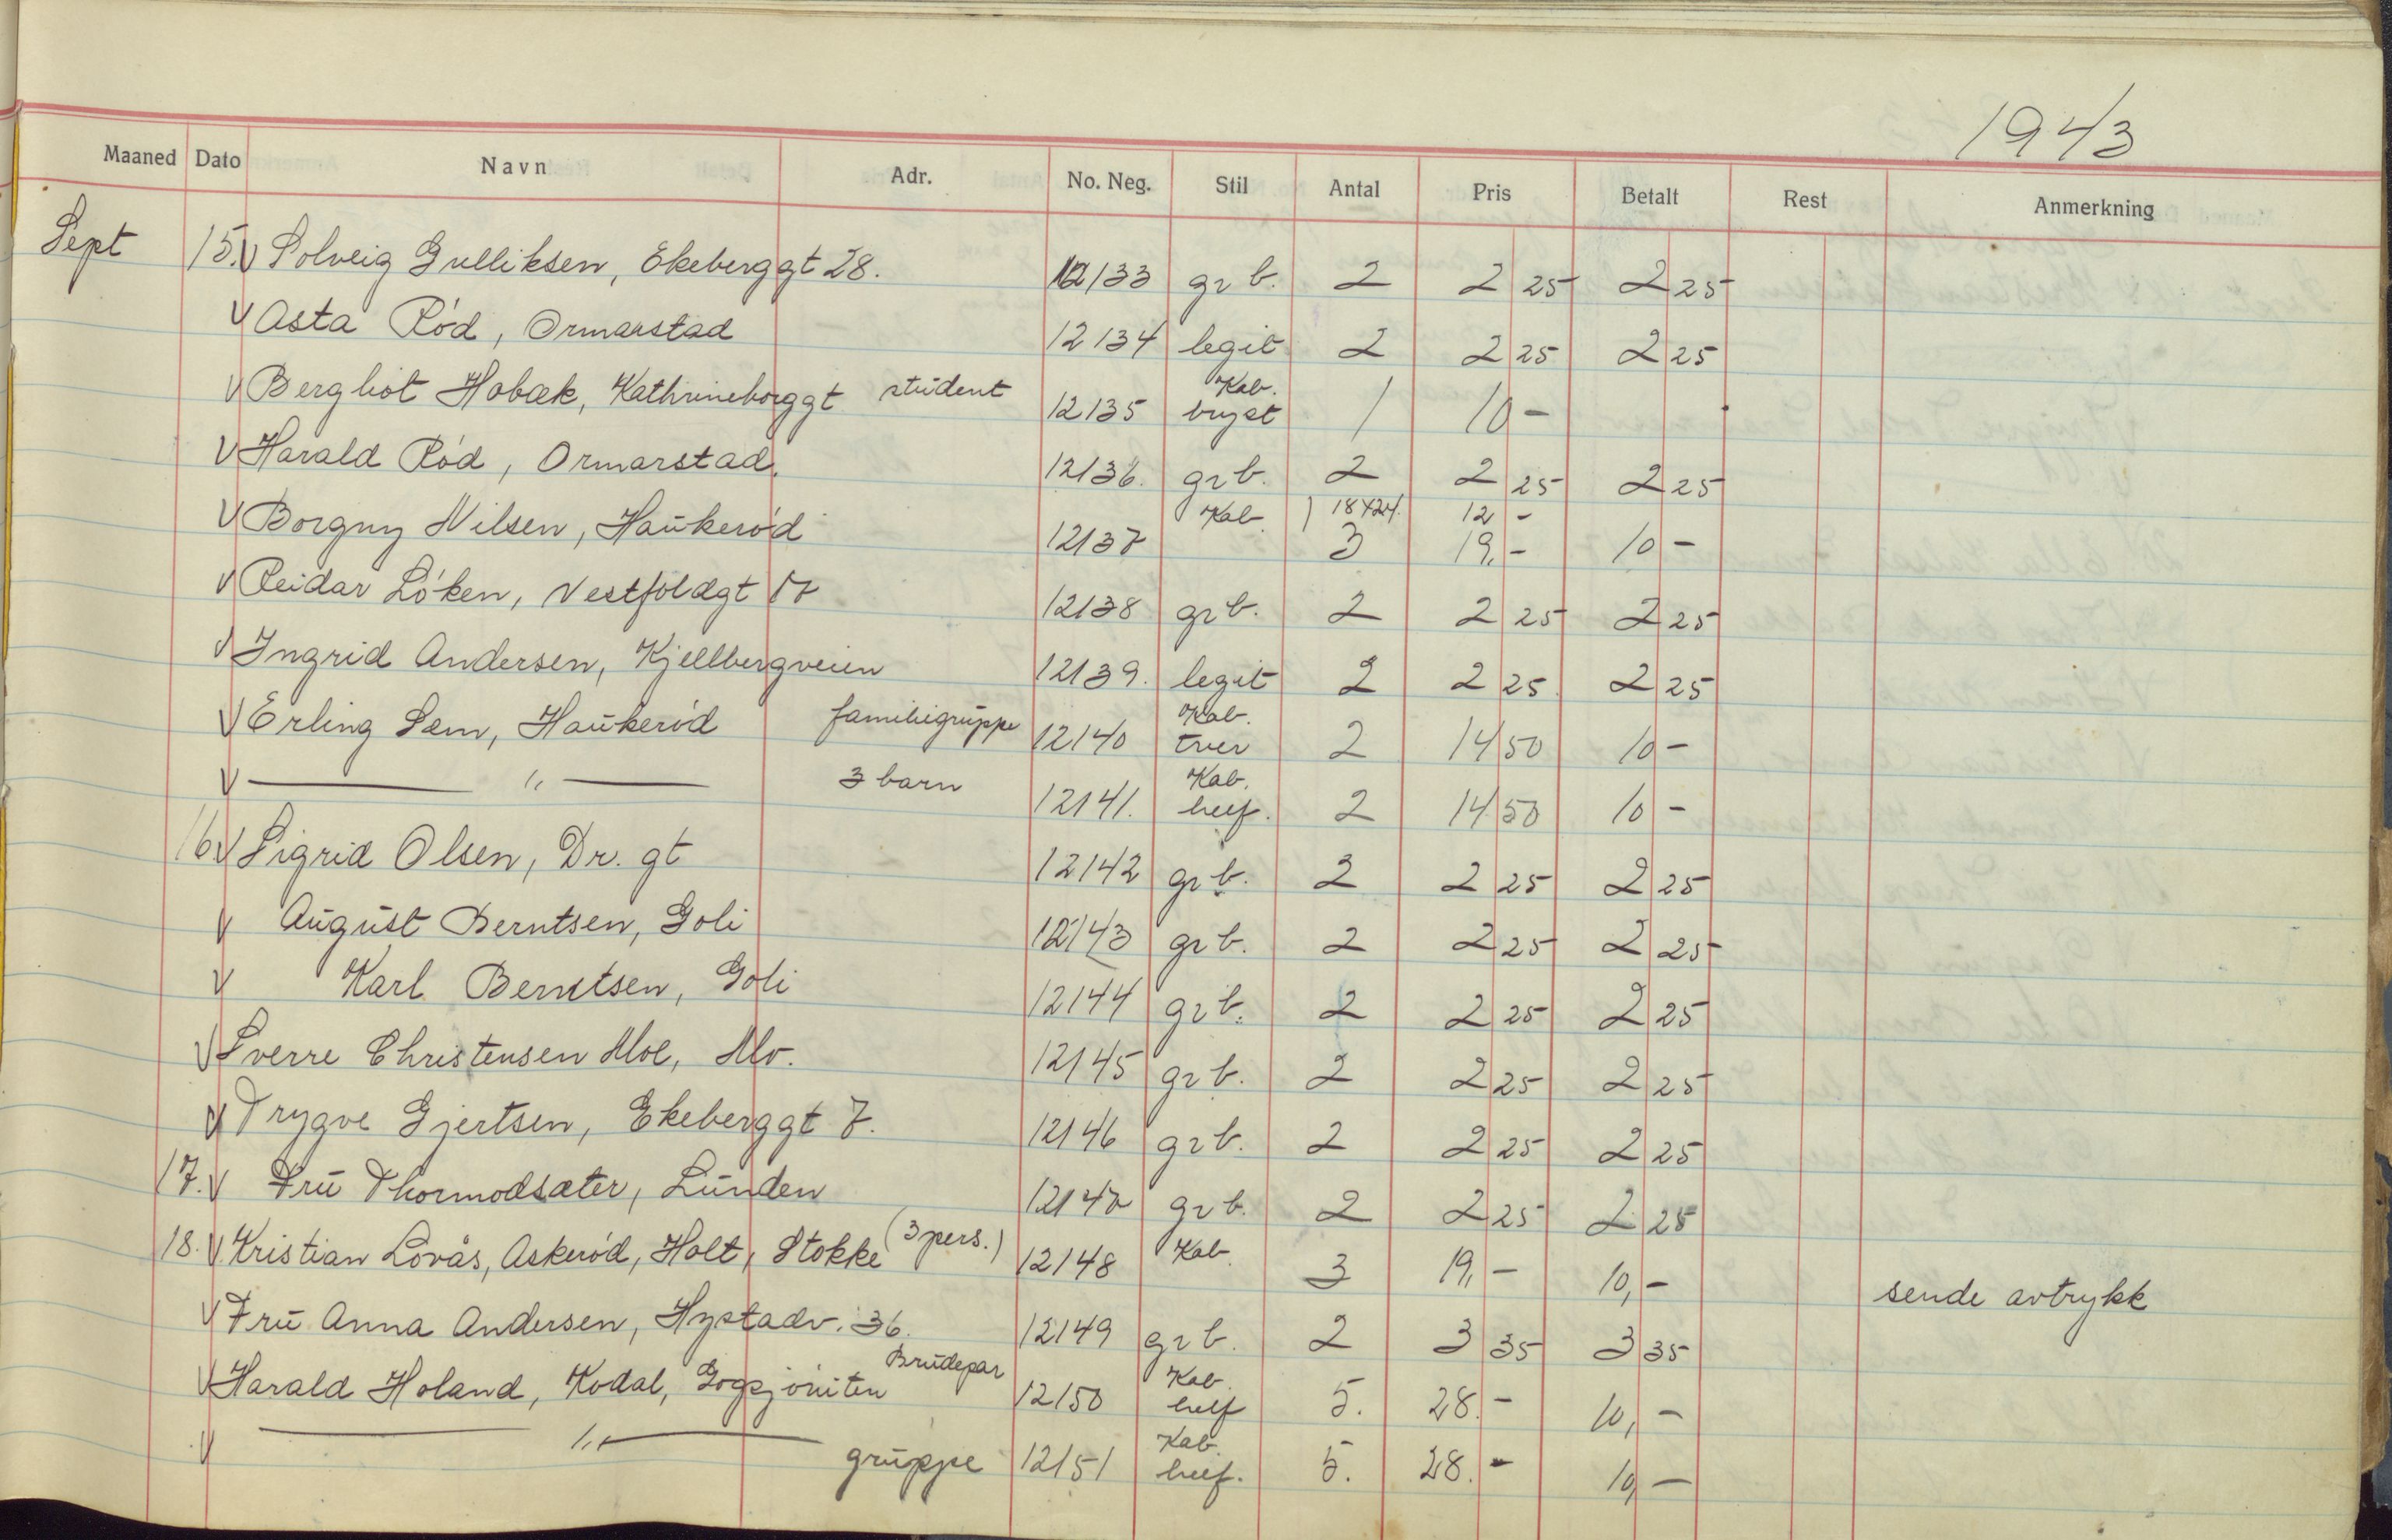 1943
Maaned Dato Navn Adr. No. Neg. Stil Antal Pris Betalt Rest Anmerkning
Sept 15. V Solveig Gulliksen, Ekeberggt 28. 12133 gr b. 2 2 25 2 25
V Asta Rød, Ormarstad 12134 legit 2 2 25 2 25
V Bergliot Hobæk, Kathrineborggt student 12135 Kab. bryst 1 10 -
V Harald Rød, Ormarstad. 12136. gr b. 2 2 25 2 25
V Borgny Nilsen, Haukerød 12137 Kab 1 18x24. 12 -
3 19,- 10 -
V Reidar Løken, Vestfoldgt 17 12138 gr b. 2 2 25 2 25
V Ingrid Andersen, Kjellbergveien 12139. legit 2 2 25 2 25
V Erling Sem, Haukerød familiegruppe 12140 Kab. tver 2 14 50 10 -
V — " — 3 barn 12141. Kab. helf. 2 14 50 10 -
16 V Sigrid Olsen, Dr. gt 12142 gr b. 2 2 25 2 25
V August Berntsen, Goli 12143 gr b. 2 2 25 2 25
V Karl Berntsen, Goli 12144 gr b. 2 2 25 2 25
V Sverre Christensen Moe, Mo. 12145 gr b. 2 2 25 2 25
V Trygve Gjertsen, Ekeberggt 7. 12146 gr b. 2 2 25 2 25
17. V Fru Thormodsæter, Lunden 12147 gr b. 2 2 25 2 25
18. V Kristian Løvås, Askerød, Holt, Stokke (3 pers.) 12148 Kab. 3 19,- 10,- sende avtrykk
V Fru Anna Andersen, Hystadv. 36. 12149 gr b. 2 3 35 3 35
V Harald Holand, Kodal, Brudepar 12150 Kab. helf 5. 28.- 10,-
V — " — gruppe 12151 Kab. helf. 5. 28.- 10,-